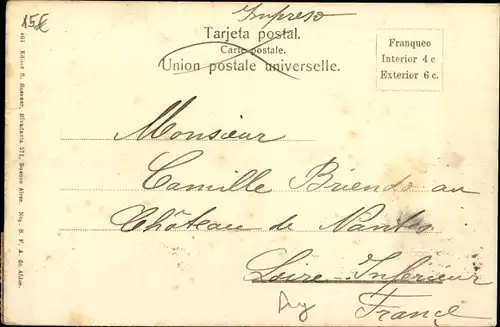 15€
Impreso
Tarjeta postal.
Carte postale.
Union postale universelle.
Franqueo
Interior 4 c
Exterior 6 c.
461 Editor R. Rosauer, Rivadavia 571, Buenos Aires. Neg. S. F. A. de Afdos.
Monsieur
Camille Briends au
Château de Nantes
Loire Inferieur
France